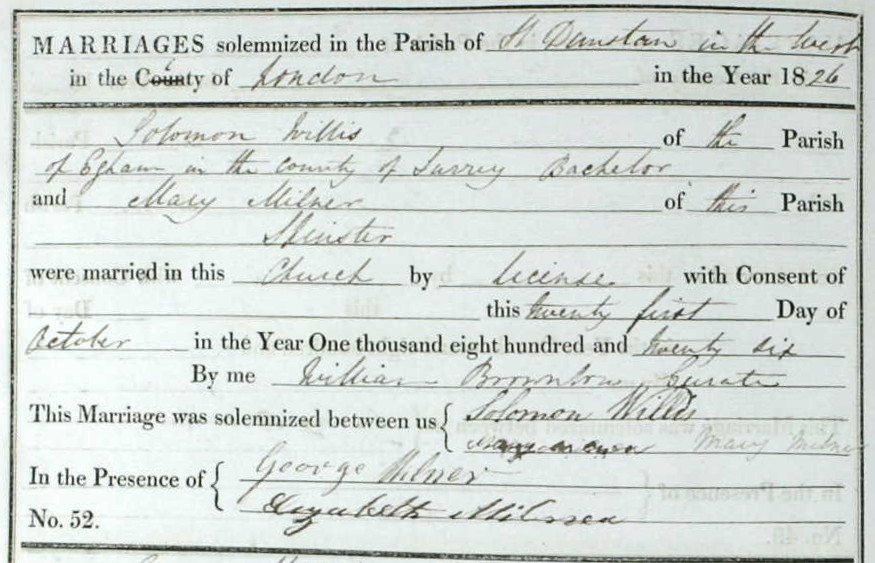 MARRIAGES solemnized in the Parish of St Dunstan in the West
in the County of London in the Year 1826
Solomon Willis of the Parish
of Egham in the county of Surrey Bachelor
and Mary Milner of this Parish
Spinster
were married in this Church by License with Consent of
this twenty first Day of
October in the Year One thousand eight hundred and twenty six
By me William Curate
This Marriage was solemnized between us { Solomon Willis
Mary Milner
In the Presence of { George Milner
Elizabeth Milner
No. 52.